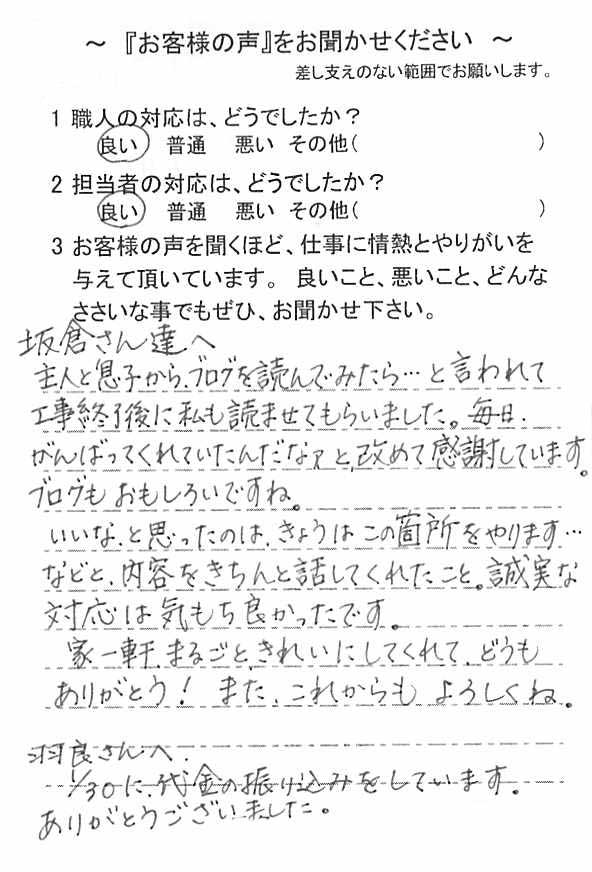 ～ 『お客様の声』をお聞かせください ～
差し支えのない範囲でお願いします。
1 職人の対応は、どうでしたか？
良い 普通 悪い その他( )
2 担当者の対応は、どうでしたか？
良い 普通 悪い その他( )
3 お客様の声を聞くほど、仕事に情熱とやりがいを
与えて頂いています。 良いこと、悪いこと、どんな
ささいな事でもぜひ、お聞かせ下さい。
坂倉さん達へ
主人と息子から、ブログを読んでみたら…と言われて
工事終了後に私も読ませてもらいました。毎日、
がんばってくれていたんだなァと、改めて感謝しています。
ブログもおもしろいですね。
いいな、と思ったのは、きょうはこの箇所をやります…
などと、内容をきちんと話してくれたこと。誠実な
対応は気もち良かったです。
家一軒、まるごと、きれいにしてくれて、どうも
ありがとう！ また、これからも よろしくね。
羽良さんへ、
1/30に、代金の振り込みをしています。
ありがとうございました。